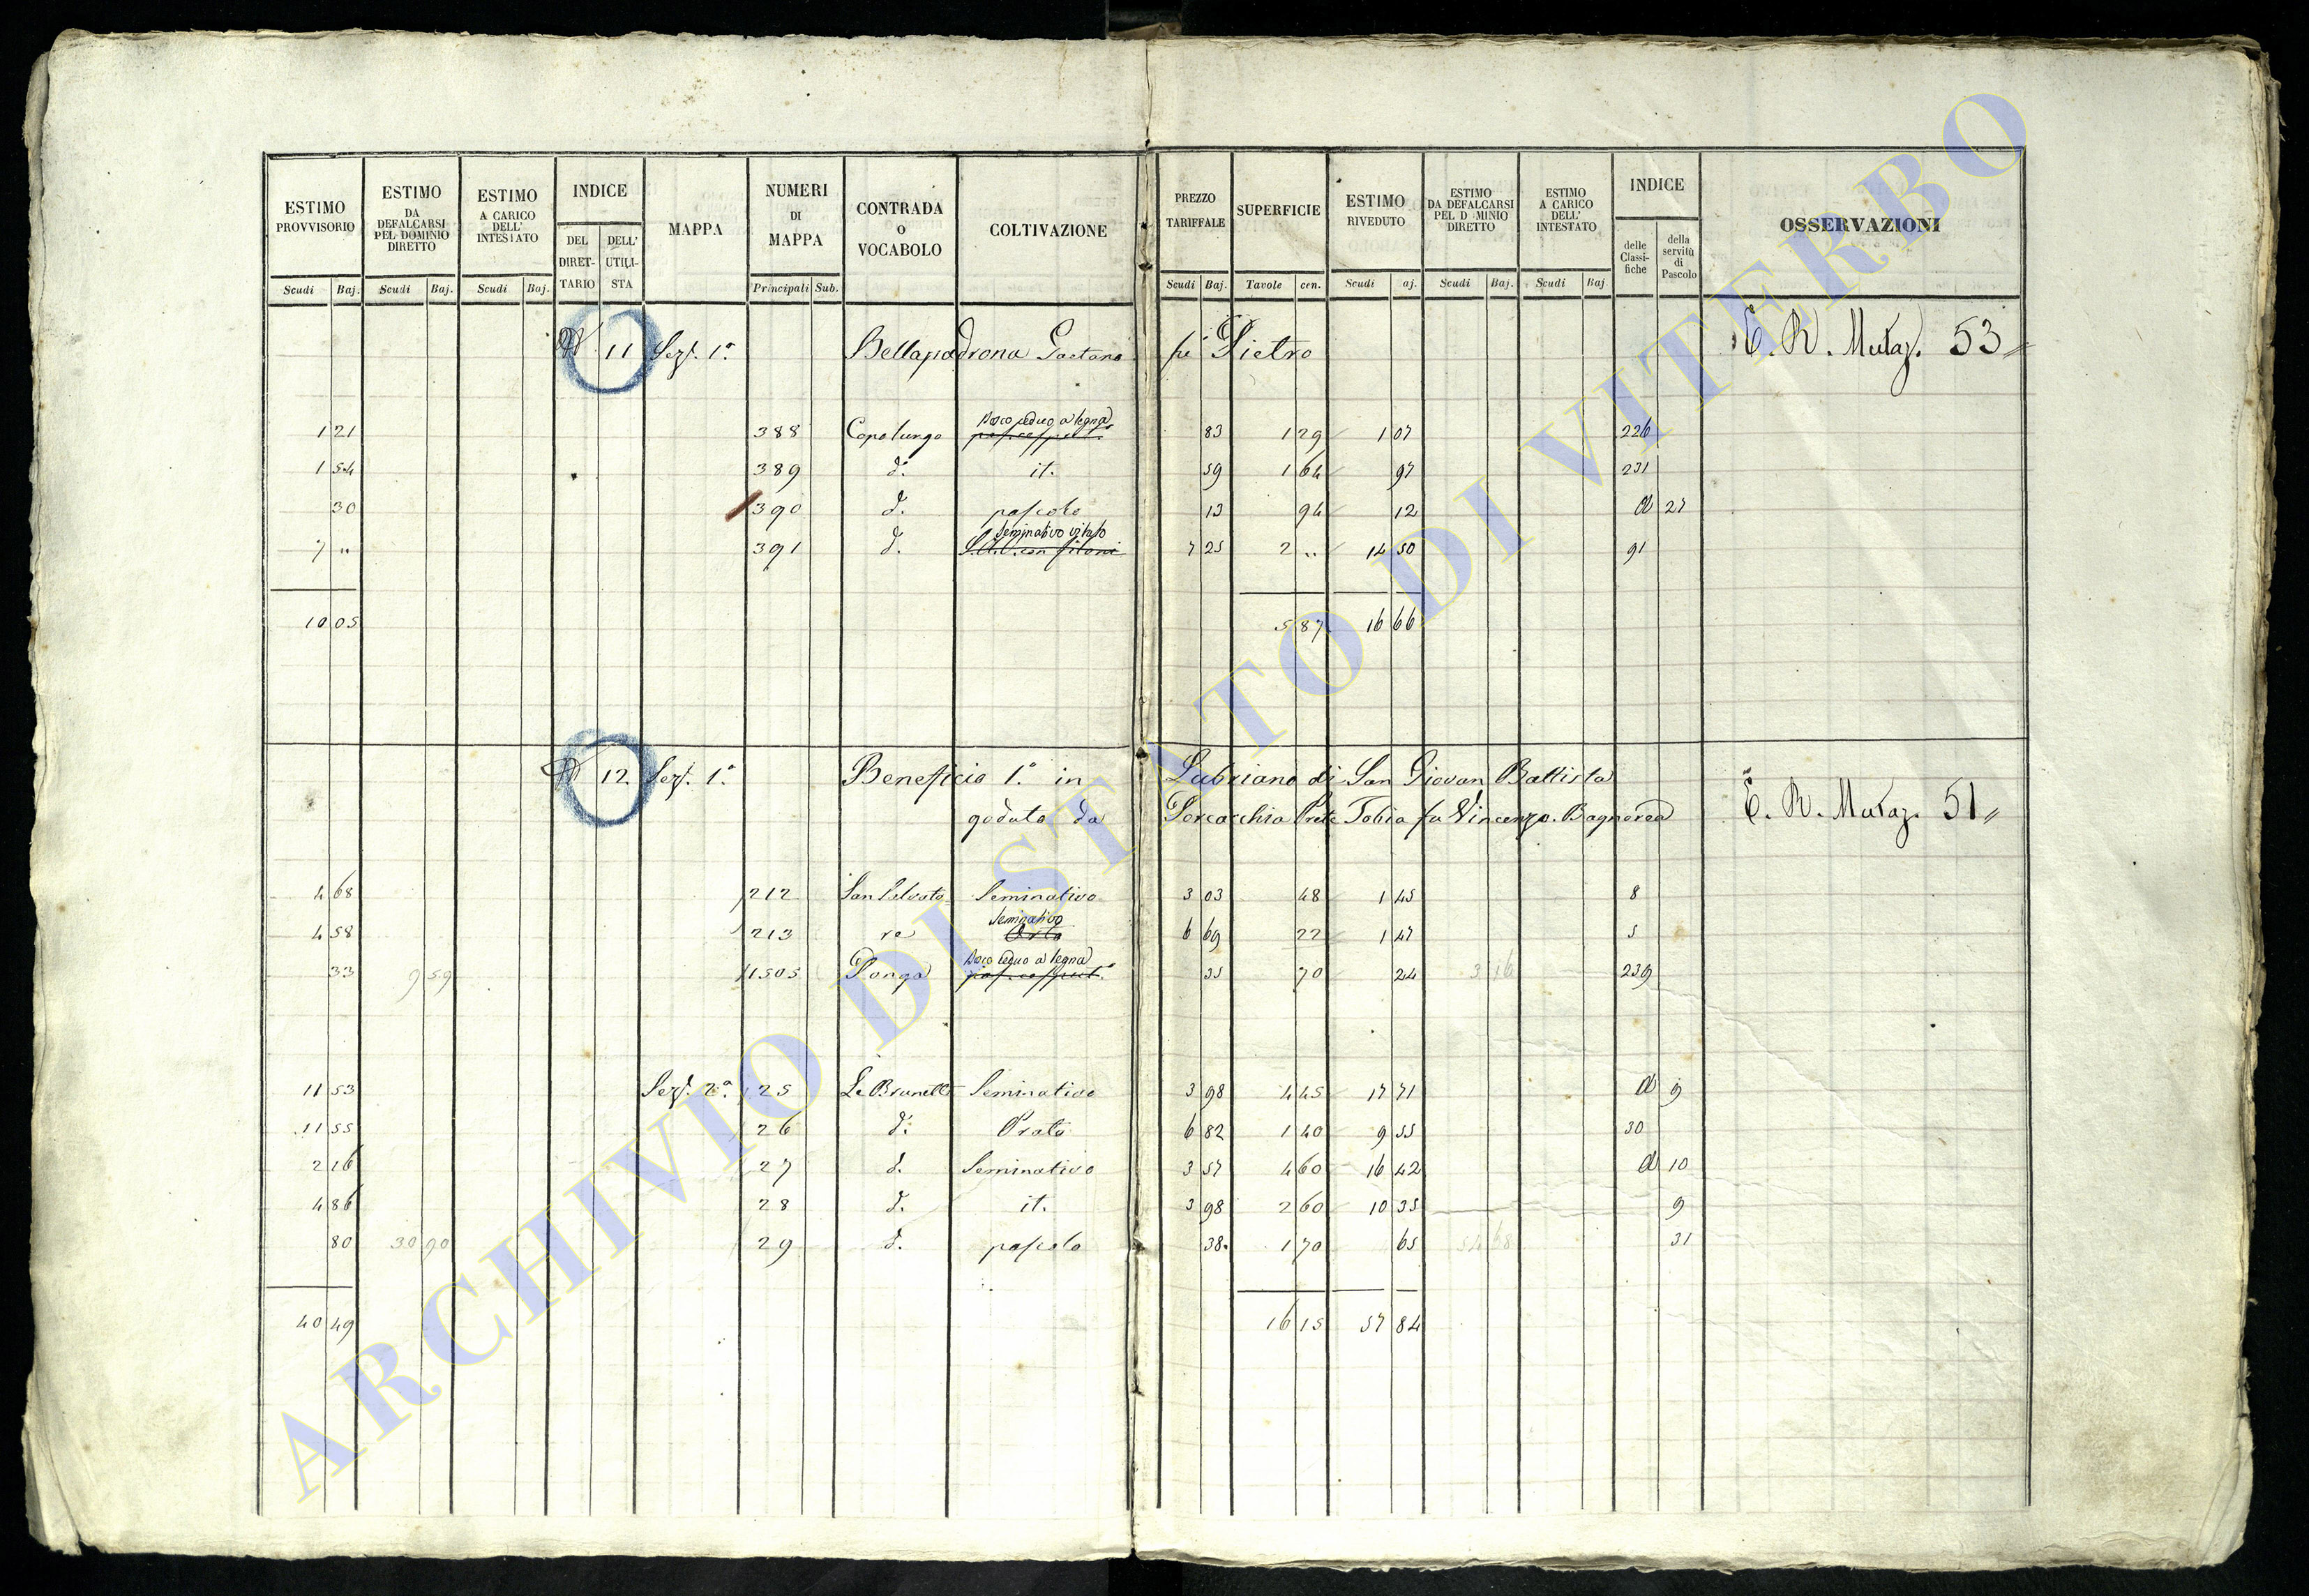 ESTIMO PROVVISORIO | ESTIMO DA DEFALCARSI PEL DOMINIO DIRETTO | ESTIMO A CARICO DELL' INTESTATO | INDICE | MAPPA | NUMERI DI MAPPA | CONTRADA O VOCABOLO | COLTIVAZIONE | PREZZO TARIFFALE | SUPERFICIE | ESTIMO RIVEDUTO | ESTIMO DA DEFALCARSI PEL D MINIO DIRETTO | ESTIMO A CARICO DELL' INTESTATO | INDICE | OSSERVAZIONI
DEL DIRET- TARIO | DELL' UTILI- STA | delle Classi- fiche | della servitù di Pascolo
Scudi | Baj. | Scudi | Baj. | Scudi | Baj. | Principali | Sub. | Scudi | Baj. | Tavole | cen. | Scudi | aj. | Scudi | Baj. | Scudi | Baj.
11 Sezf. 1ª Bellapadrona Gaetano fu Pietro E. R. Mutaz. 53
1 21 388 Capolungo Bosco ceduo a legna 83 1 29 1 07 226
1 54 389 d. it. 59 1 64 97 231
30 390 d. pascolo 13 94 12 27
7 " 391 d. Seminativo vitato 7 25 2 " 14 50 91
10 05 5 87 16 66
12 Sezf. 1ª Beneficio 1º in Lubriano di San Giovan Battista
goduto da Porcacchia Prete Tobia fu Vincenzo. Bagnorea E. R. Mutaz. 51
4 68 212 San Salvato Seminativo 3 03 48 1 45 8
4 58 213 re Seminativo Orto 6 69 22 1 47 5
33 9 59 1505 Ponga Bosco ceduo a legna 35 70 24 3 16 239
11 53 Sezf. 2ª 25 Le Brunelle Seminativo 3 98 4 45 17 71 9
11 55 26 d. Prato 6 82 1 40 9 55 30
2 16 27 d. Seminativo 3 57 4 60 16 42 10
4 86 28 d. it. 3 98 2 60 10 35 9
80 30 90 29 d. pascolo 38 1 70 65 54 68 31
40 49 16 15 57 84
ARCHIVIO DI STATO DI VITERBO